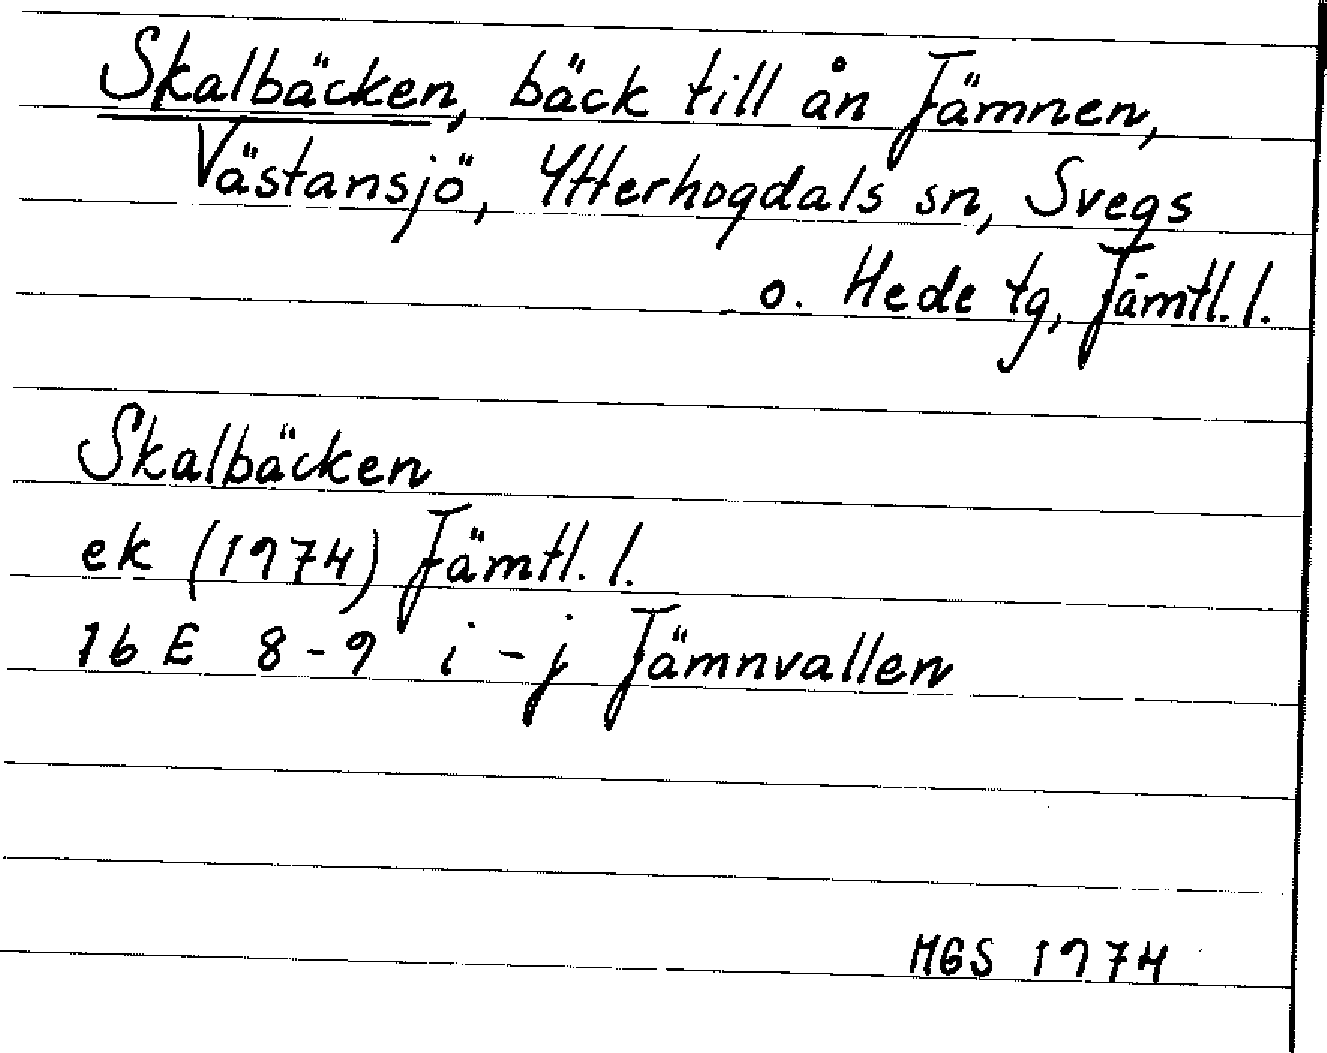 Skalbäcken, bäck till ån Jämnen,
Västansjö, Ytterhogdals sn, Svegs
o. Hede tg, Jämtl. l.
Skalbäcken
ek (1974) Jämtl. l.
16 E 8-9 i-j Jämnvallen
MGS 1974